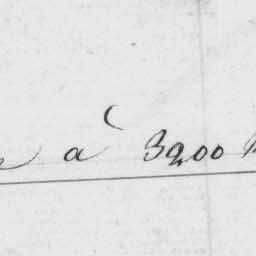 à 3200